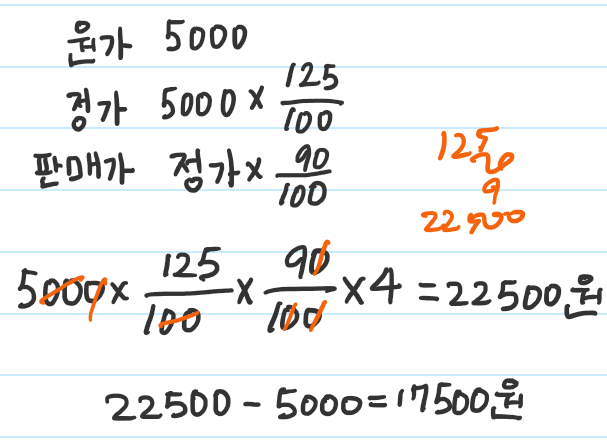 원가 5000
정가 5000 × 125/100
판매가 정가 × 90/100
125
20
9
22500
5000 × 125/100 × 90/100 × 4 = 22500원
22500 - 5000 = 17500원